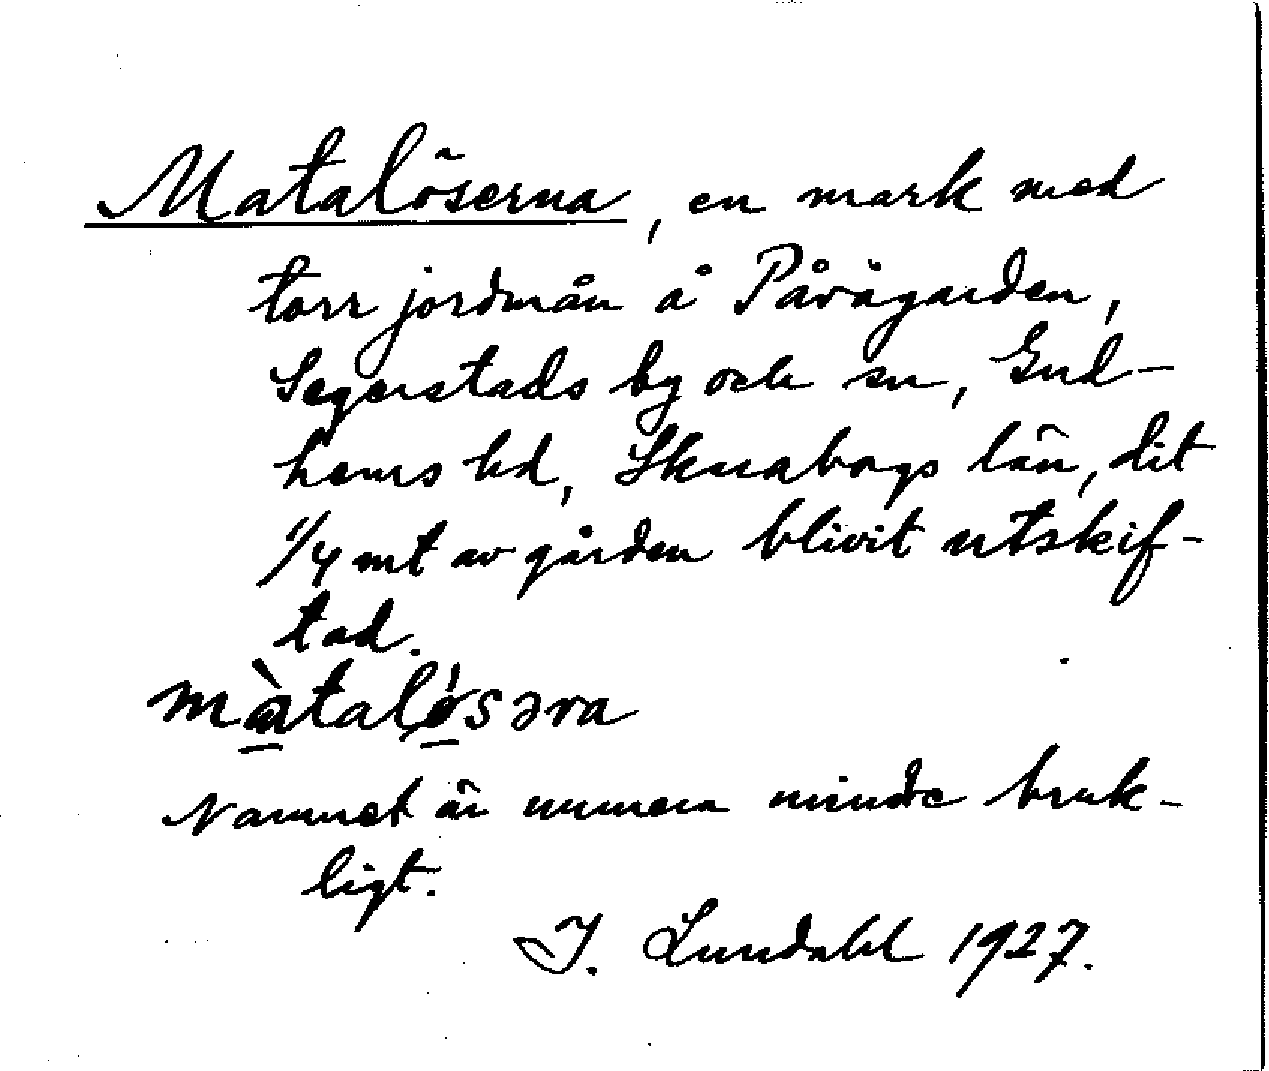 Matalöserna, en mark med
torr jordmån å Påvägarden,
Segerstads by och sn, Gud-
hems hd, Skaraborgs län, dit
1/4 mt av gården blivit utskif-
tad.
màtalø̀səra
Namnet är numera mindre bruk-
ligt.
I. Lundahl 1927.